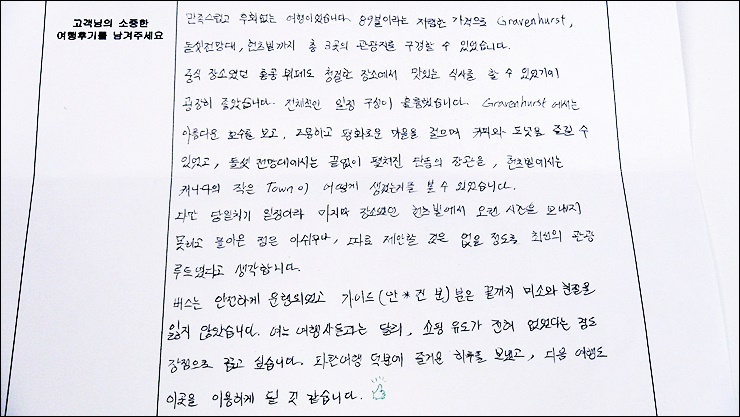 고객님의 소중한
여행후기를 남겨주세요
만족스럽고 후회없는 여행이었습니다. 89불이라는 저렴한 가격으로 Gravenhurst,
돌셋전망대, 헌츠빌까지 총 3곳의 관광지를 구경할 수 있었습니다.
중식 장소였던 홍콩 뷔페도 청결한 장소에서 맛있는 식사를 할 수 있었기에
굉장히 좋았습니다. 전체적인 일정 구성이 훌륭했습니다. Gravenhurst 에서는
아름다운 호수를 보고, 조용하고 평화로운 마을을 걸으며 커피와 도넛을 즐길 수
있었고, 돌셋 전망대에서는 끝없이 펼쳐진 단풍의 장관을, 헌츠빌에서는
캐나다의 작은 Town이 어떻게 생겼는지를 볼 수 있었습니다.
다만 당일치기 일정이라 마지막 장소였던 헌츠빌에서 오랜 시간을 보내지
못하고 돌아온 점은 아쉬우나, 따로 제안할 것은 없을 정도로 최선의 관광
루트였다고 생각합니다.
버스는 안전하게 운행되었고 가이드(안*건 보)분은 끝까지 미소와 친절을
잃지 않았습니다. 여느 여행사들과는 달리, 쇼핑 유도가 전혀 없었다는 점도
강점으로 꼽고 싶습니다. 파란여행 덕분에 즐거운 하루를 보냈고, 다음 여행도
이곳을 이용하게 될 것 같습니다.